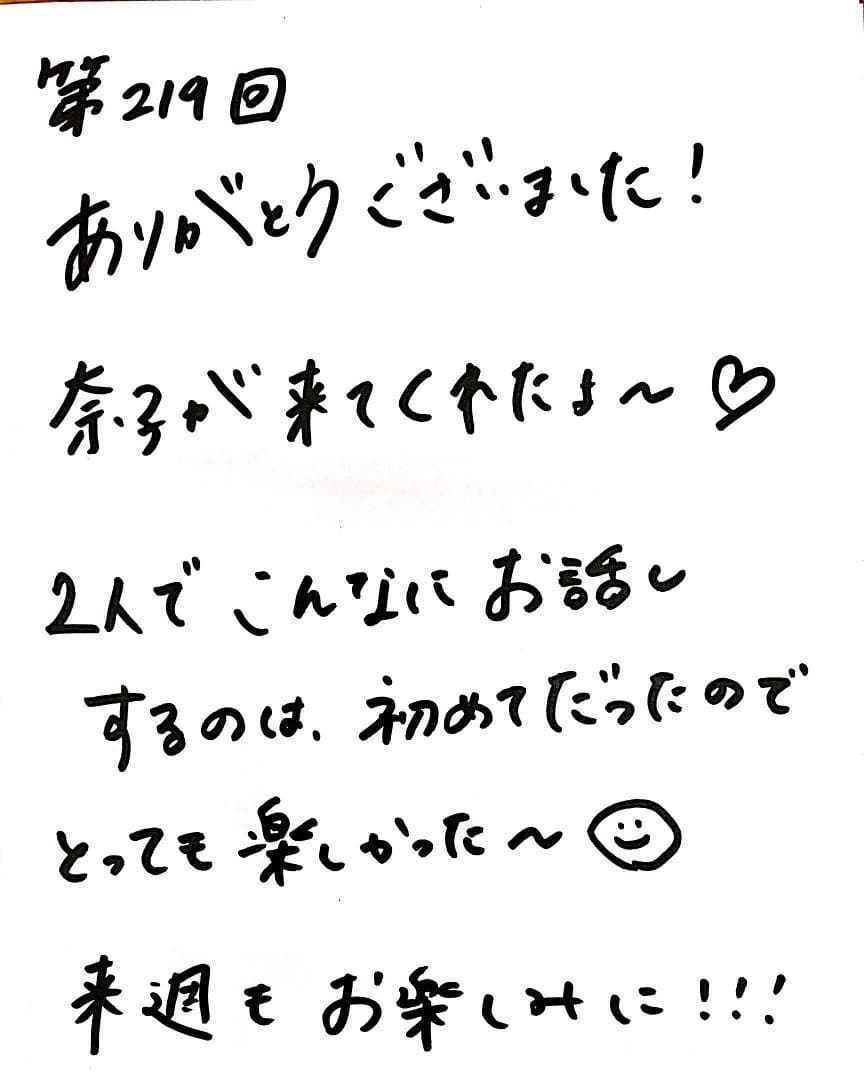 第219回
ありがとうございました！
奈子が来てくれたよ〜♡
2人でこんなにお話し
するのは、初めてだったので
とっても楽しかった〜
来週もお楽しみに！！！